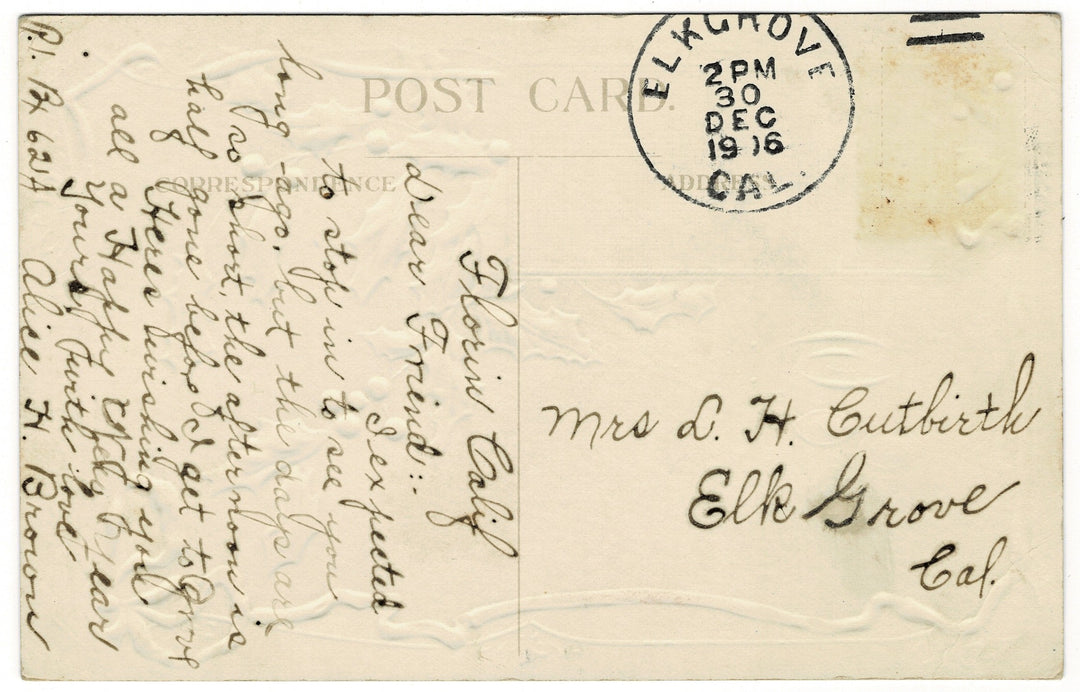 POST CARD.
CORRESPONDENCE
ADDRESS
ELK GROVE
2 PM
30
DEC
1916
CAL.
Florin Calif
dear Friend:-
I expected
to stop in to see you
long-ago, but the days are
so short, the afternoon is
half gone before I get to Grove
Heres wishing you
all a Happy New Year
Yours with love
Alice H. Brown
R.1. B 621A
Mrs L. H. Cutbirth
Elk Grove
Cal.